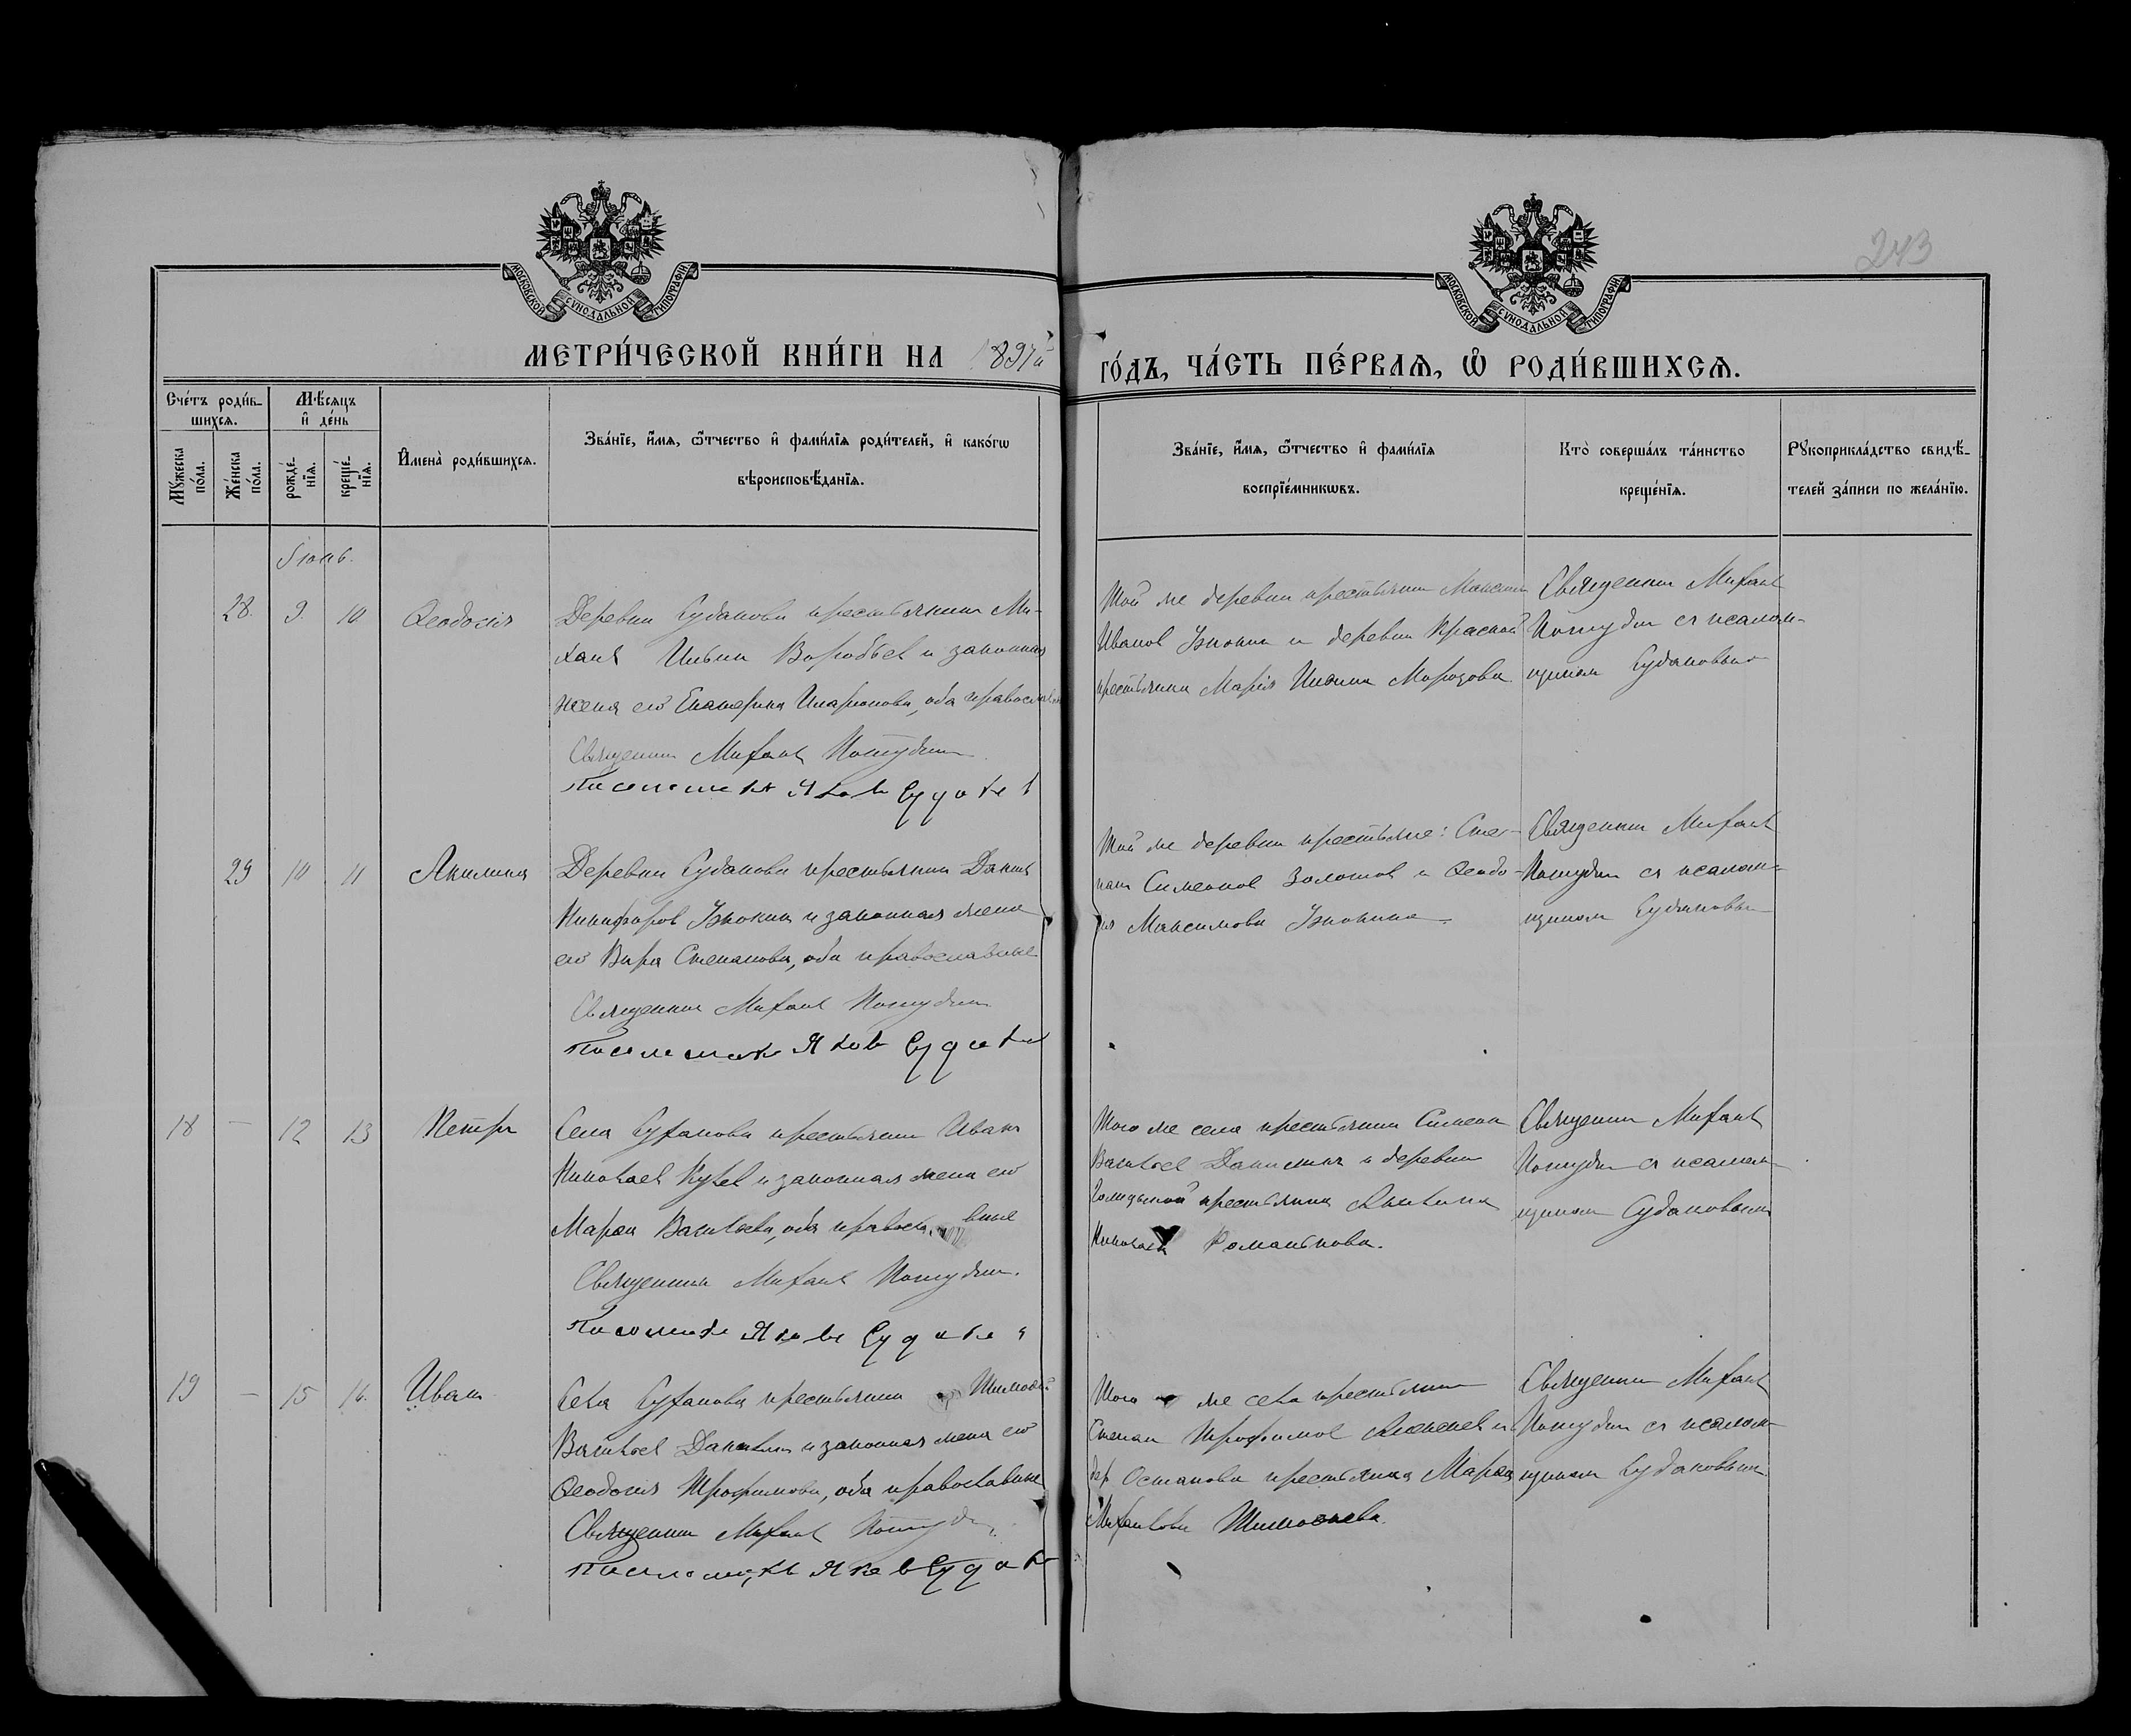 243
МОСКОВСКОЙ СѴНОДАЛЬНОЙ ТИПОГРАФІИ
МОСКОВСКОЙ СѴНОДАЛЬНОЙ ТИПОГРАФІИ
МЕТРИ́ЧЕСКОЙ КНИ́ГИ НА 1897й
ГО́ДЪ, ЧА́СТЬ ПЕ́РВАѦ, Ѽ РОДИ́ВШИХСѦ.
Сче́тъ роди́в-
шихсѧ.
Мꙋ́жеска
по́ла.
Же́нска
по́ла.
Мѣ́сѧцъ
и҆ де́нь
рожде́-
нїѧ.
креще́-
нїѧ.
И҆мена̀ роди́вшихсѧ.
Зва́нїе, и҆́мѧ, ѻ҆́тчество и҆ фами́лїѧ роди́телей, и҆ како́гѡ
вѣроисповѣ́данїѧ.
Зва́нїе, и҆́мѧ, ѻ҆́тчество и҆ фами́лїѧ
воспрїе́мникѡвъ.
Кто̀ соверша́лъ та́инство
креще́нїѧ.
Рꙋкоприкла́дство свидѣ́-
телей за́писи по жела́нїю.
Іюнь.
28. 9. 10 Ѳеодосія
Деревни Судакова крестьянинъ Ми-
хаилъ Ильинъ Воробьев и законная
жена его Екатерина Иларионова, оба православн
Священник Михаил
Псаломщик Яков Судаков
Той же деревни крестьянин Максим
Иванов и деревни Красной
крестьянка Марія Морозова
Священник Михаил
съ псалом-
щиком Судаковым
29 10 11 Акилина
Деревни Судакова крестьянин Данил
Никифоров и законная жена
его Вѣра Степанова, оба православные
Священник Михаил
Псаломщик Яков Судаков
Той же деревни крестьяне: Сте-
пан Симеонов Золотов и Ѳеодо-
сія Максимова
Священник Михаил
съ псалом-
щиком Судаковым
18 — 12 13 Петръ
Села крестьянин Иван
Николаев и законная жена его
Марѳа Васильева, оба православные
Священник Михаил
Псаломщик Яков Судаков
Того же села крестьянин Симеон
Васильев Данилин и деревни
крестьянка
Романькова.
Священник Михаил
съ псалом-
щиком Судаковым
19 — 15 16. Иван
Села крестьянин Тимоѳей
Васильев Данилин и законная жена его
Ѳеодосія Трофимова, оба православные
Священник Михаил
Псаломщик Яков Судаков
Того же села крестьянин
Степан Трофимов и
дер. Останкова крестьянка Марѳа
Михайлова Тимоѳеева.
Священник Михаил
съ псалом-
щиком Судаковым